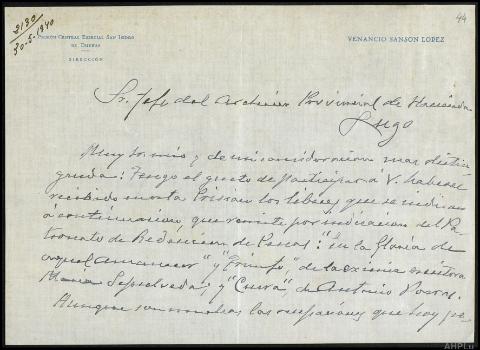 3130
30-5-1940
44
Prisión Central Especial San Isidro
de Dueñas
DIRECCIÓN
VENANCIO SANSON LOPEZ
Sr. Jefe del Archivo Provincial de Hacienda
Lugo
Muy Sr. mio y de mi consideracion mas distin
guida: Tengo el gusto de participar á V. haberse
recibido en esta Prisión los libros que se indican
á continuacion que remite por indicacion del Pa
tronato de Redencion de Penas: "En la gloria de
aquel amanecer" y "Triunfo", de la eximia escritora
Maria Sepulveda; y "Cueva", de Antonio
Aunque son muchas las ocupaciones que hoy pe
AHPLu